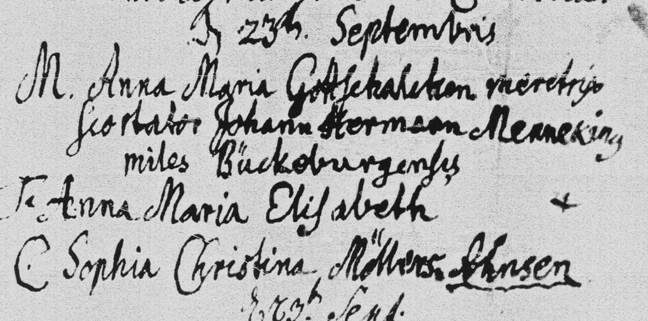 23th. Septembris
M. Anna Maria Gottschalcken meretrix
scortator Johann Herman Menneking
miles Bückeburgensis
F. Anna Maria Elisabeth
C Sophia Christina Möllers Ahnsen
23th Sept.